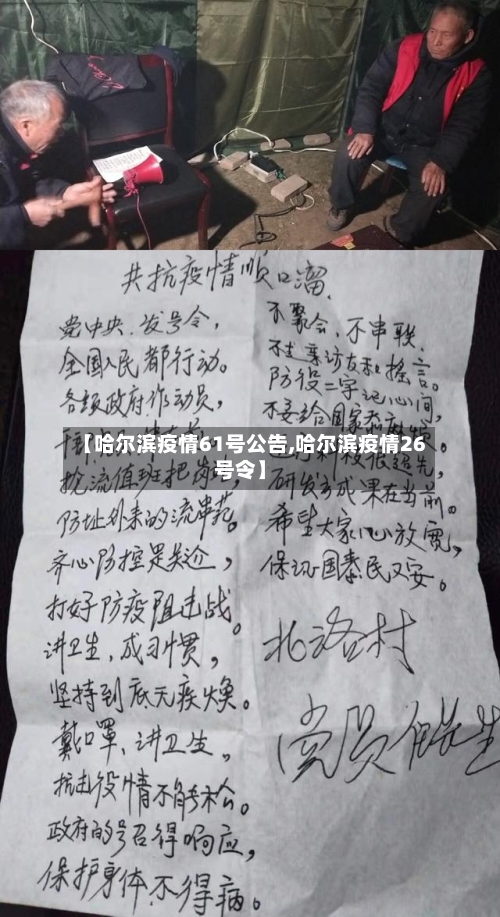 共抗疫情顺口溜.
党中央.发号令,
全国人民都行动。
各级政府作动员,
轮流值班把岗
防止外来的流串苑。
齐心防控是关介,
打好防疫阻击战。
讲卫生,成习惯,
坚持到底无疾焕。
戴口罩、讲卫生,
抗击役情不能松。
政府的号召得响应,
保护身体不得病。
不聚会、不串联.
不走亲访友和摇言。
防役二字记心间,
不要给国家添麻烦。
研发方成果在当前。
希望大家心放宽,
保证国泰民又安。
北洛村
党员
【哈尔滨疫情61号公告,哈尔滨疫情26
号令】